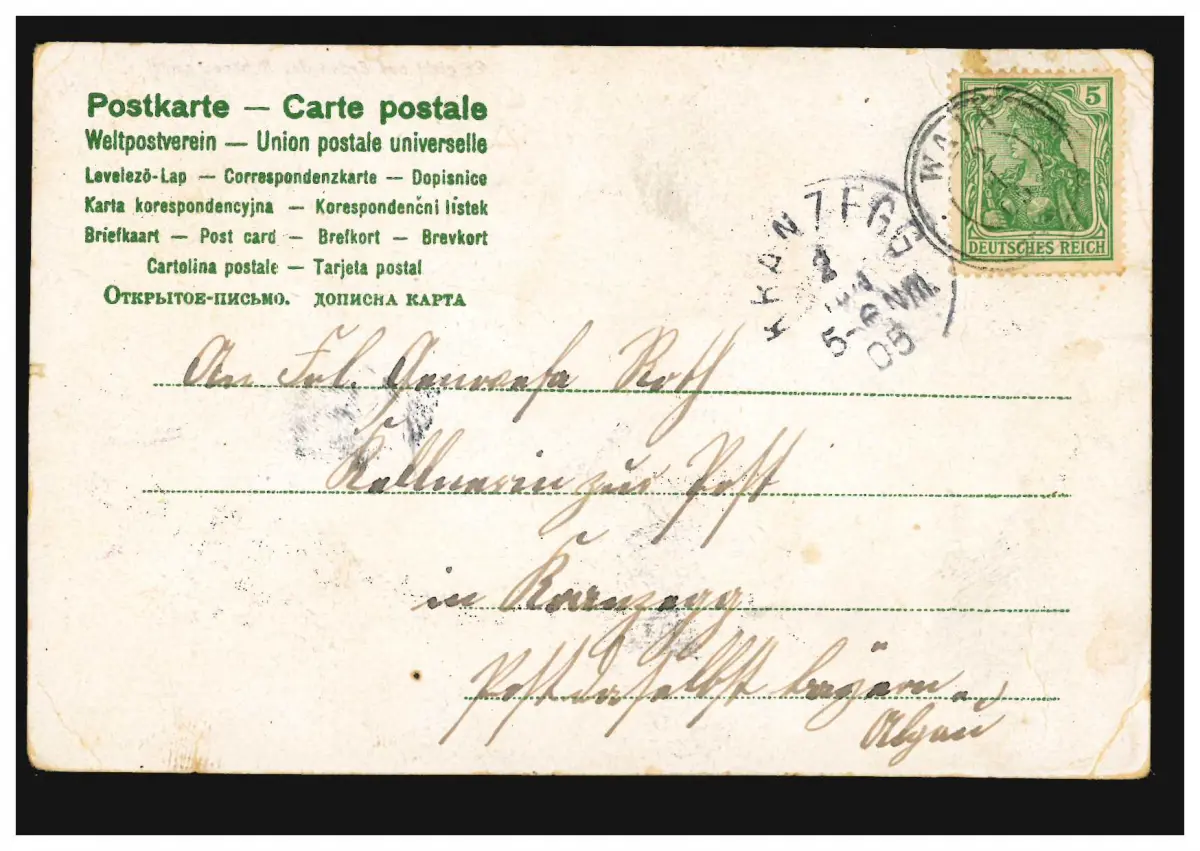 Postkarte — Carte postale
Weltpostverein — Union postale universelle
Levelezö-Lap — Correspondenzkarte — Dopisnice
Karta korespondencyjna — Korespondenčni lístek
Briefkaart — Post card — Brefkort — Brevkort
Cartolina postale — Tarjeta postal
Открытое-письмо. дописна карта
5
DEUTSCHES REICH
KRANZEGG
5-6 NM.
05
An Frl. Genovefa Roth
Kellnerin zur Post
in Kranzegg
Post daselbst bayern.
Algau